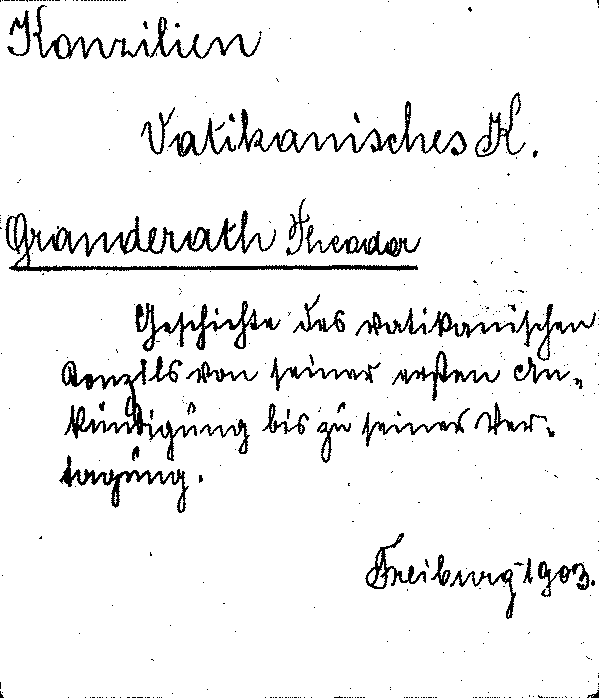 Konzilien
Vatikanisches K.
Granderath Theodor
Geschichte des vatikanischen
Konzils von seiner ersten An-
kündigung bis zu seiner Ver-
tagung.
Freiburg 1903.